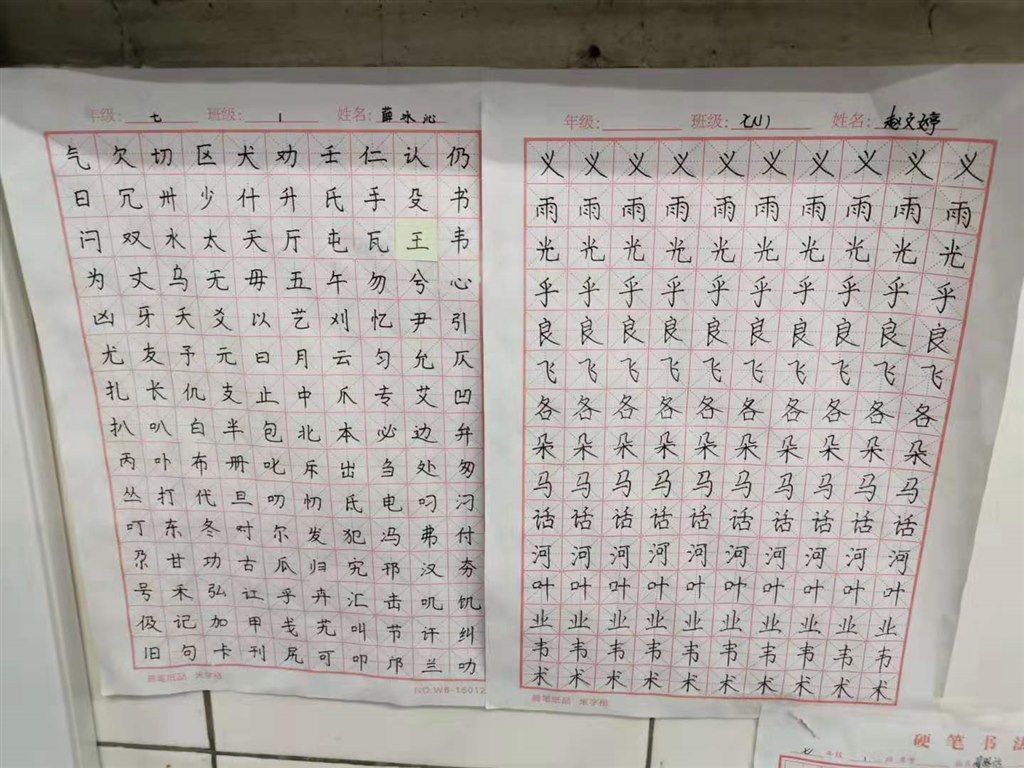 年级: 七 班级: 1 姓名: 薛冰沁
气欠切区犬劝壬仁认仍
日冗卅少什升氏手殳书
闩双水太天厅屯瓦王韦
为丈乌无毋五午勿兮心
凶牙夭爻以艺刈忆尹引
尤友予元曰月云匀允仄
扎长仇支止中爪专艾凹
扒叭白半包北本必边弁
丙卟布册叱斥出刍处匆
丛打代旦叨忉氐电叼汈
叮东冬叶尔发犯冯弗付
尕甘功古瓜归宄邗汉夯
号禾弘讧乎卉汇击叽饥
伋记加甲戋艽叫节讦纠
旧句卡刊尻可叩邝兰叻
晋笔纸品 米字格
NO:WB-16012
年级: 班级: 七(1) 姓名: 赵文婷
义义义义义义义义义义
雨雨雨雨雨雨雨雨雨雨
光光光光光光光光光光
乎乎乎乎乎乎乎乎乎乎
良良良良良良良良良良
飞飞飞飞飞飞飞飞飞飞
各各各各各各各各各各
朵朵朵朵朵朵朵朵朵朵
马马马马马马马马马马
话话话话话话话话话话
河河河河河河河河河河
叶叶叶叶叶叶叶叶叶叶
业业业业业业业业业业
韦韦韦韦韦韦韦韦韦韦
术术术术术术术术术术
晋笔纸品 米字格
硬笔书法
七 年级 1 班